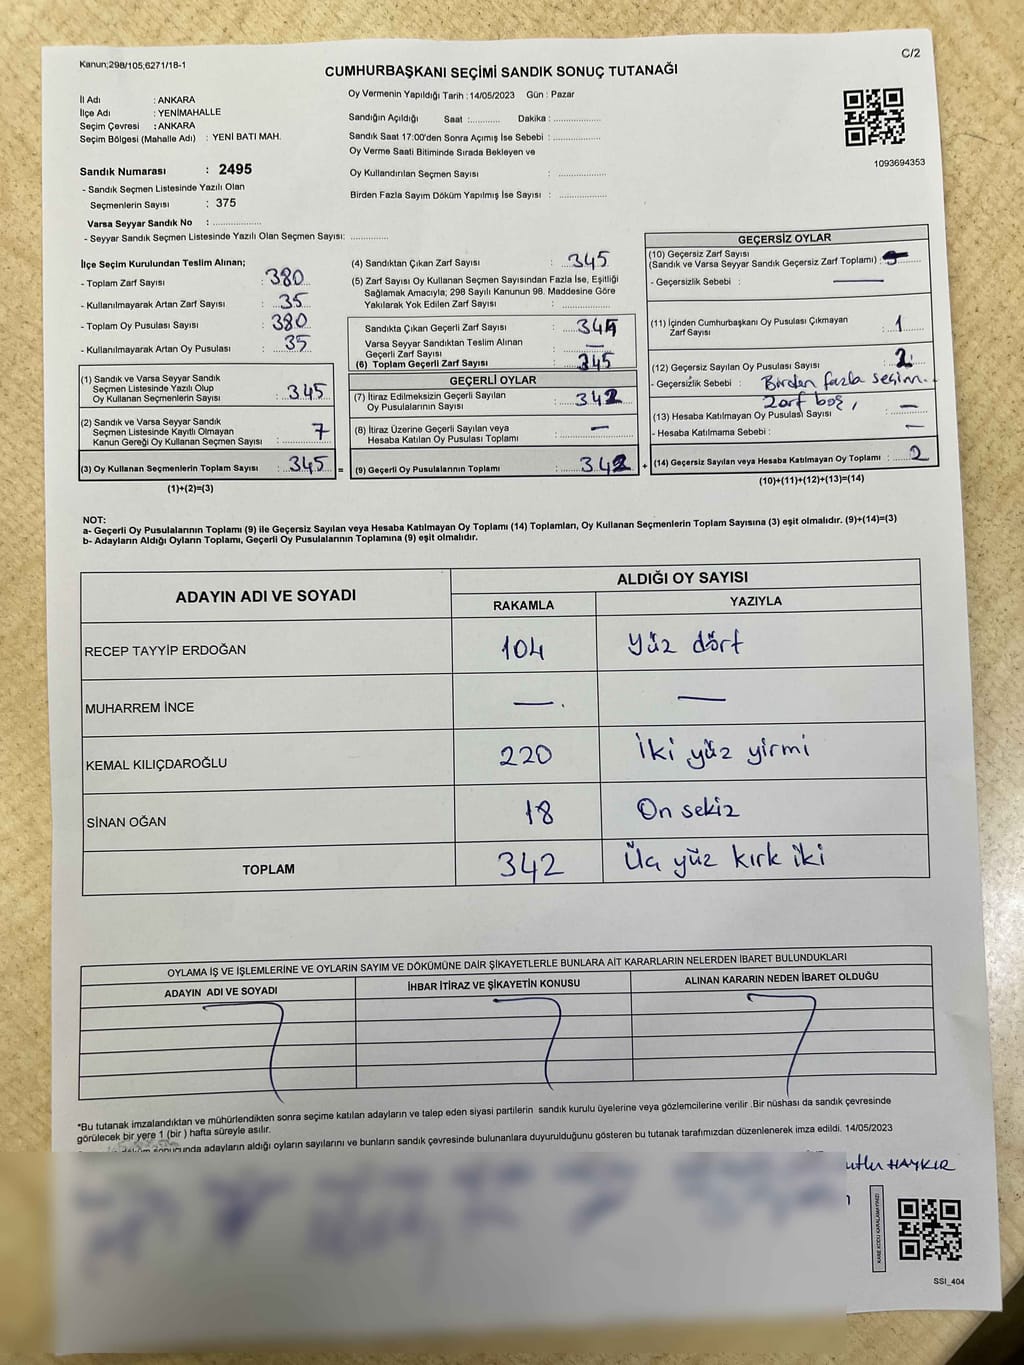 Kanun;298/105,6271/18-1
C/2
CUMHURBAŞKANI SEÇİMİ SANDIK SONUÇ TUTANAĞI
İl Adı : ANKARA
İlçe Adı : YENİMAHALLE
Seçim Çevresi : ANKARA
Seçim Bölgesi (Mahalle Adı) : YENİ BATI MAH.
Sandık Numarası : 2495
- Sandık Seçmen Listesinde Yazılı Olan
Seçmenlerin Sayısı : 375
Varsa Seyyar Sandık No :
- Seyyar Sandık Seçmen Listesinde Yazılı Olan Seçmen Sayısı:
Oy Vermenin Yapıldığı Tarih : 14/05/2023 Gün : Pazar
Sandığın Açıldığı Saat : Dakika :
Sandık Saat 17:00'den Sonra Açımış İse Sebebi :
Oy Verme Saati Bitiminde Sırada Bekleyen ve
Oy Kullandırılan Seçmen Sayısı :
Birden Fazla Sayım Döküm Yapılmış İse Sayısı :
1093694353
İlçe Seçim Kurulundan Teslim Alınan;
- Toplam Zarf Sayısı : 380
- Kullanılmayarak Artan Zarf Sayısı : 35
- Toplam Oy Pusulası Sayısı : 380
- Kullanılmayarak Artan Oy Pusulası : 35
(1) Sandık ve Varsa Seyyar Sandık
Seçmen Listesinde Yazılı Olup
Oy Kullanan Seçmenlerin Sayısı : 345
(2) Sandık ve Varsa Seyyar Sandık
Seçmen Listesinde Kayıtlı Olmayan
Kanun Gereği Oy Kullanan Seçmen Sayısı : 7
(3) Oy Kullanan Seçmenlerin Toplam Sayısı : 345 =
(1)+(2)=(3)
(4) Sandıktan Çıkan Zarf Sayısı : 345
(5) Zarf Sayısı Oy Kullanan Seçmen Sayısından Fazla İse, Eşitliği
Sağlamak Amacıyla; 298 Sayılı Kanunun 98. Maddesine Göre
Yakılarak Yok Edilen Zarf Sayısı :
Sandıkta Çıkan Geçerli Zarf Sayısı :
Varsa Seyyar Sandıktan Teslim Alınan
Geçerli Zarf Sayısı : —
(6) Toplam Geçerli Zarf Sayısı : 345
GEÇERLİ OYLAR
(7) İtiraz Edilmeksizin Geçerli Sayılan
Oy Pusulalarının Sayısı : 342
(8) İtiraz Üzerine Geçerli Sayılan veya
Hesaba Katılan Oy Pusulası Toplamı : —
(9) Geçerli Oy Pusulalarının Toplamı : 342 +
GEÇERSİZ OYLAR
(10) Geçersiz Zarf Sayısı
(Sandık ve Varsa Seyyar Sandık Geçersiz Zarf Toplamı) :
- Geçersizlik Sebebi : —
(11) İçinden Cumhurbaşkanı Oy Pusulası Çıkmayan
Zarf Sayısı : 1
(12) Geçersiz Sayılan Oy Pusulası Sayısı : 2
- Geçersizlik Sebebi : Birden fazla seçim.
Zarf boş,
(13) Hesaba Katılmayan Oy Pusulası Sayısı : —
- Hesaba Katılmama Sebebi : —
(14) Geçersiz Sayılan veya Hesaba Katılmayan Oy Toplamı : 2
(10)+(11)+(12)+(13)=(14)
NOT:
a- Geçerli Oy Pusulalarının Toplamı (9) ile Geçersiz Sayılan veya Hesaba Katılmayan Oy Toplamı (14) Toplamları, Oy Kullanan Seçmenlerin Toplam Sayısına (3) eşit olmalıdır. (9)+(14)=(3)
b- Adayların Aldığı Oyların Toplamı, Geçerli Oy Pusulalarının Toplamına (9) eşit olmalıdır.
ADAYIN ADI VE SOYADI ALDIĞI OY SAYISI
RAKAMLA YAZIYLA
RECEP TAYYİP ERDOĞAN 104 Yüz dört
MUHARREM İNCE — . —
KEMAL KILIÇDAROĞLU 220 İki yüz yirmi
SİNAN OĞAN 18 On sekiz
TOPLAM 342 Üç yüz kırk iki
OYLAMA İŞ VE İŞLEMLERİNE VE OYLARIN SAYIM VE DÖKÜMÜNE DAİR ŞİKAYETLERLE BUNLARA AİT KARARLARIN NELERDEN İBARET BULUNDUKLARI
ADAYIN ADI VE SOYADI İHBAR İTİRAZ VE ŞİKAYETİN KONUSU ALINAN KARARIN NEDEN İBARET OLDUĞU
*Bu tutanak imzalandıktan ve mühürlendikten sonra seçime katılan adayların ve talep eden siyasi partilerin sandık kurulu üyelerine veya gözlemcilerine verilir .Bir nüshası da sandık çevresinde
görülecek bir yere 1 (bir ) hafta süreyle asılır.
sonucunda adayların aldığı oyların sayılarını ve bunların sandık çevresinde bulunanlara duyurulduğunu gösteren bu tutanak tarafımızdan düzenlenerek imza edildi. 14/05/2023
HAYKIR
KARE KODU KARALAMAYINIZ!
SSI_404